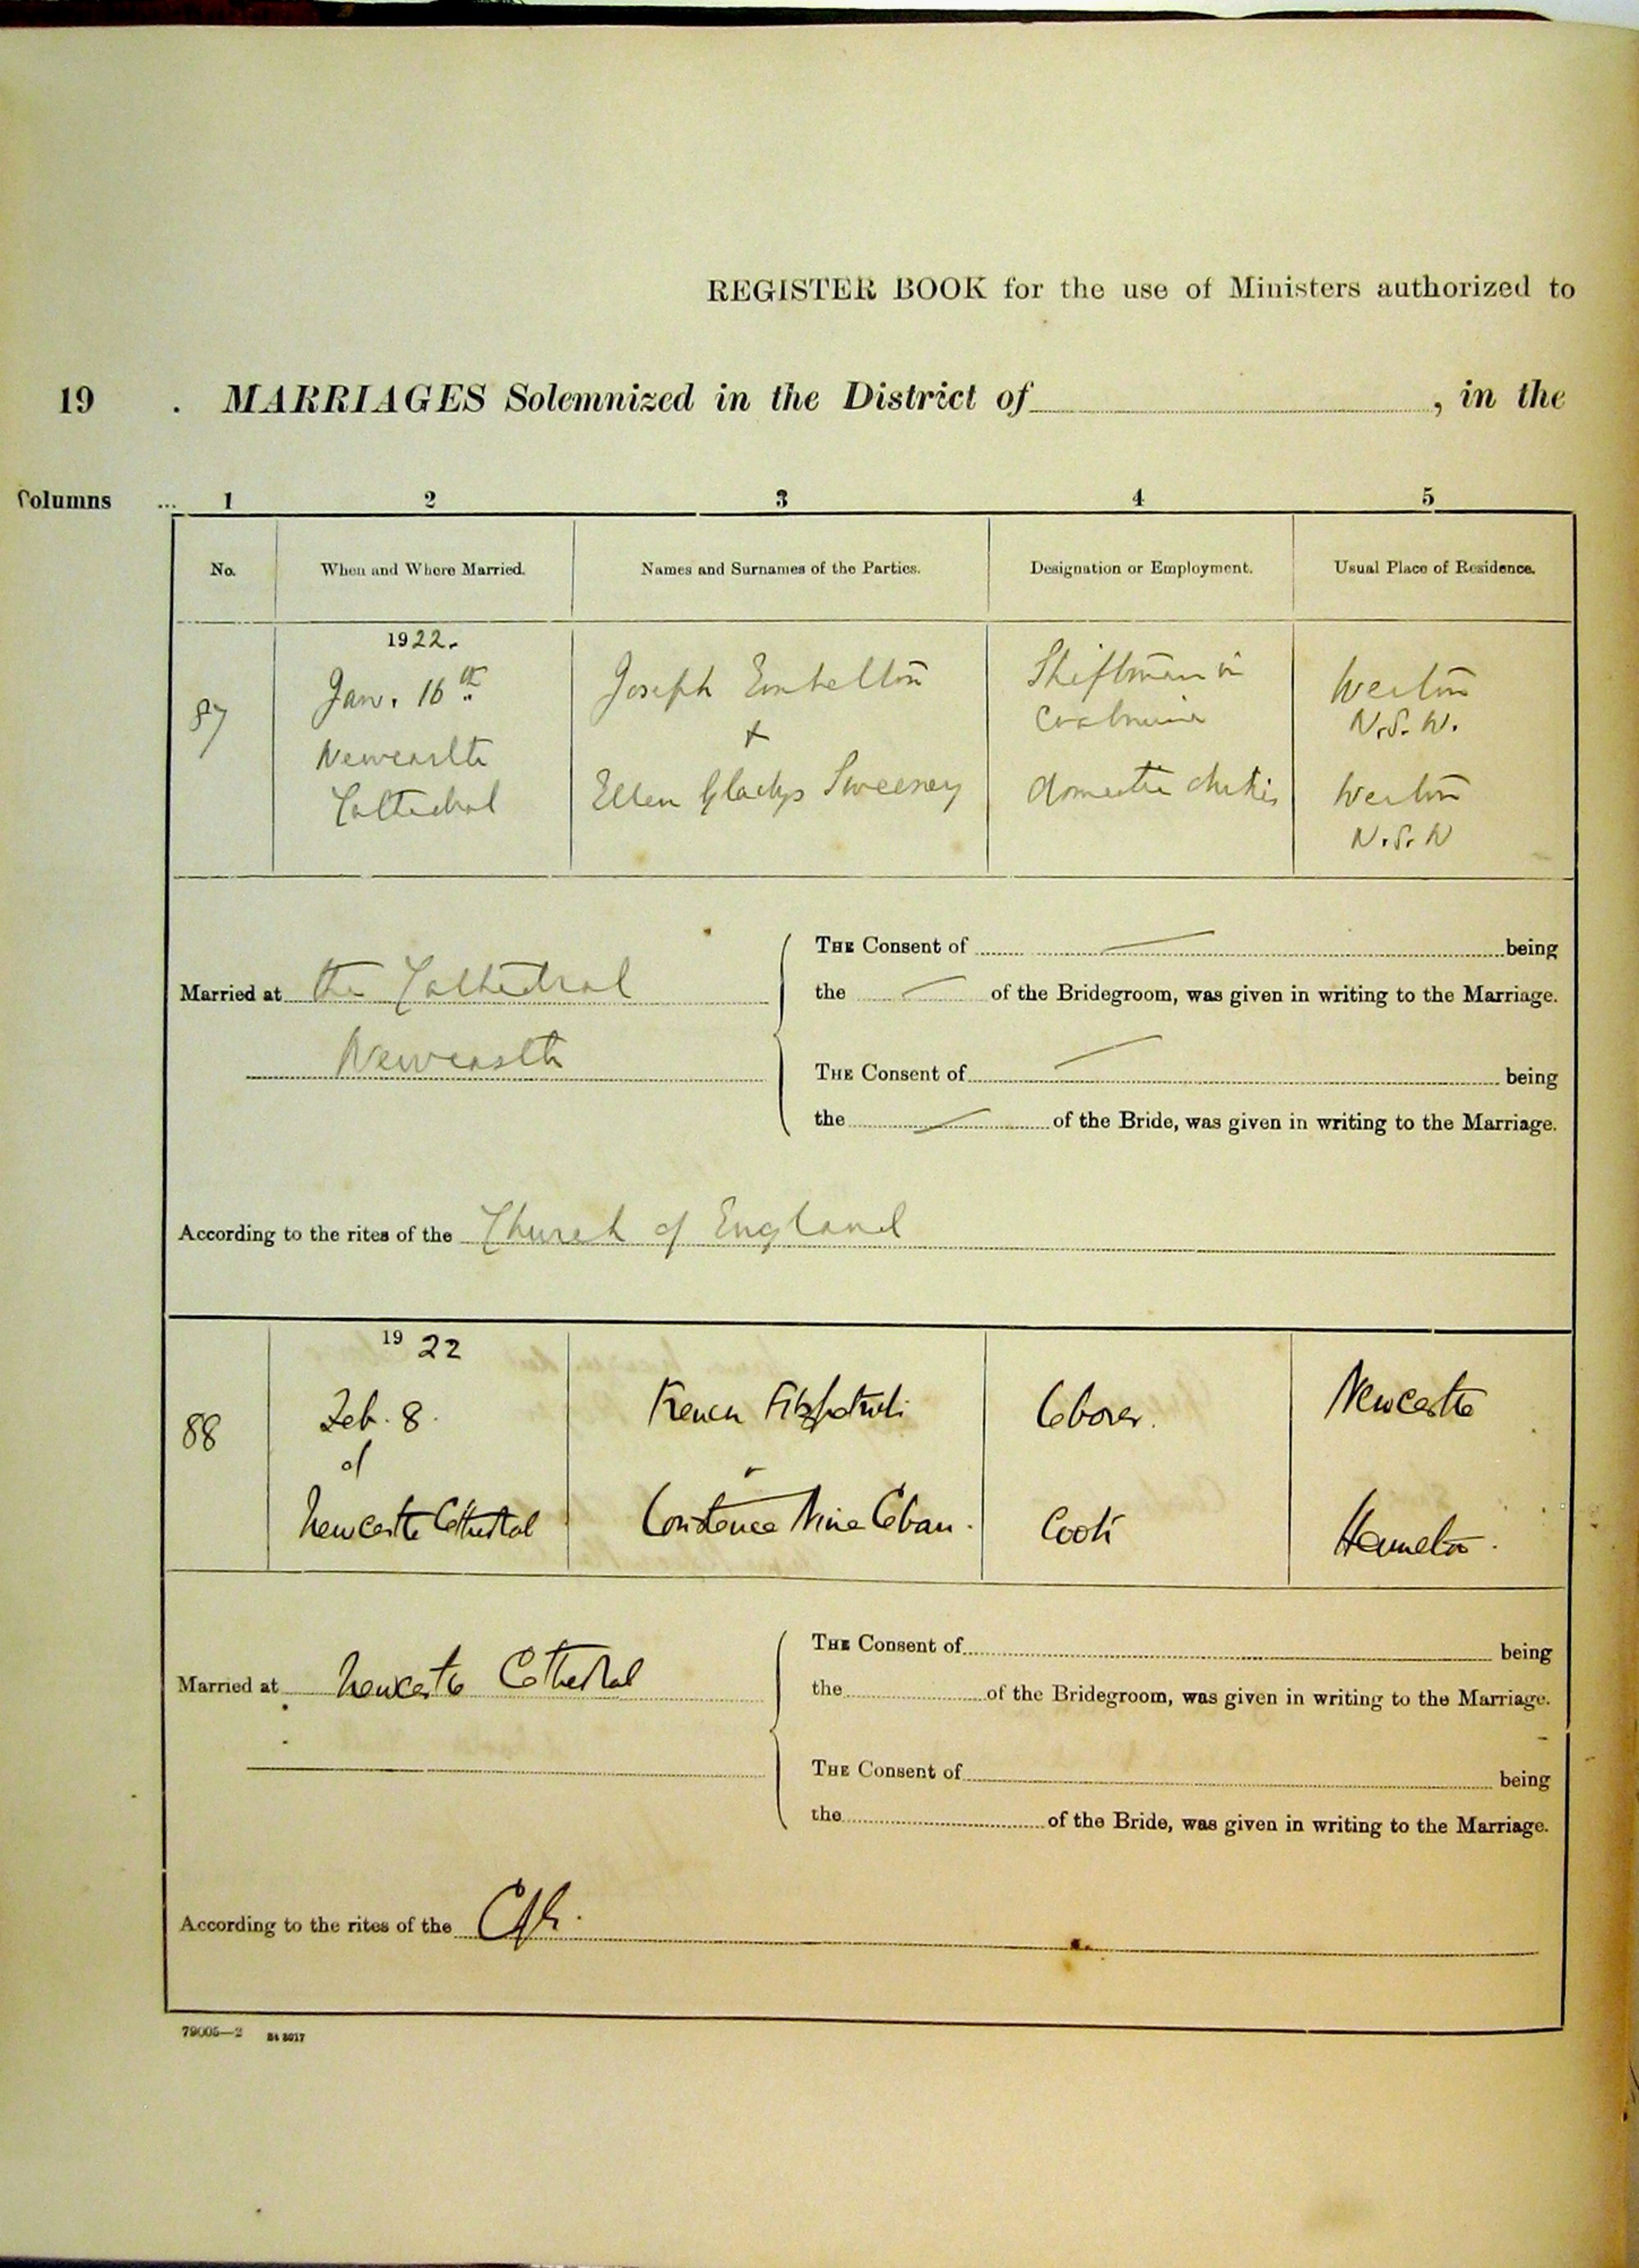 REGISTER BOOK for the use of Ministers authorized to
19 . MARRIAGES Solemnized in the District of , in the
Columns ... 1 2 3 4 5
No. When and Where Married. Names and Surnames of the Parties. Designation or Employment. Usual Place of Residence.
1922.
87 Jan. 16th Joseph Embelton Shiftman in Weston
Coalmine N.S.W.
Newcastle +
Cathedral Ellen Gladys Sweeney domestic duties Weston
N.S.W
THE Consent of being
Married at the Cathedral the of the Bridegroom, was given in writing to the Marriage.
Newcastle THE Consent of being
the of the Bride, was given in writing to the Marriage.
According to the rites of the Church of England
1922
88 Feb. 8. Fitzpatrick Labourer. Newcastle
of
Newcastle Cathedral Constance Cook Hamilton.
THE Consent of being
Married at Newcastle Cathedral the of the Bridegroom, was given in writing to the Marriage.
THE Consent of being
the of the Bride, was given in writing to the Marriage.
According to the rites of the C of E.
79005—2